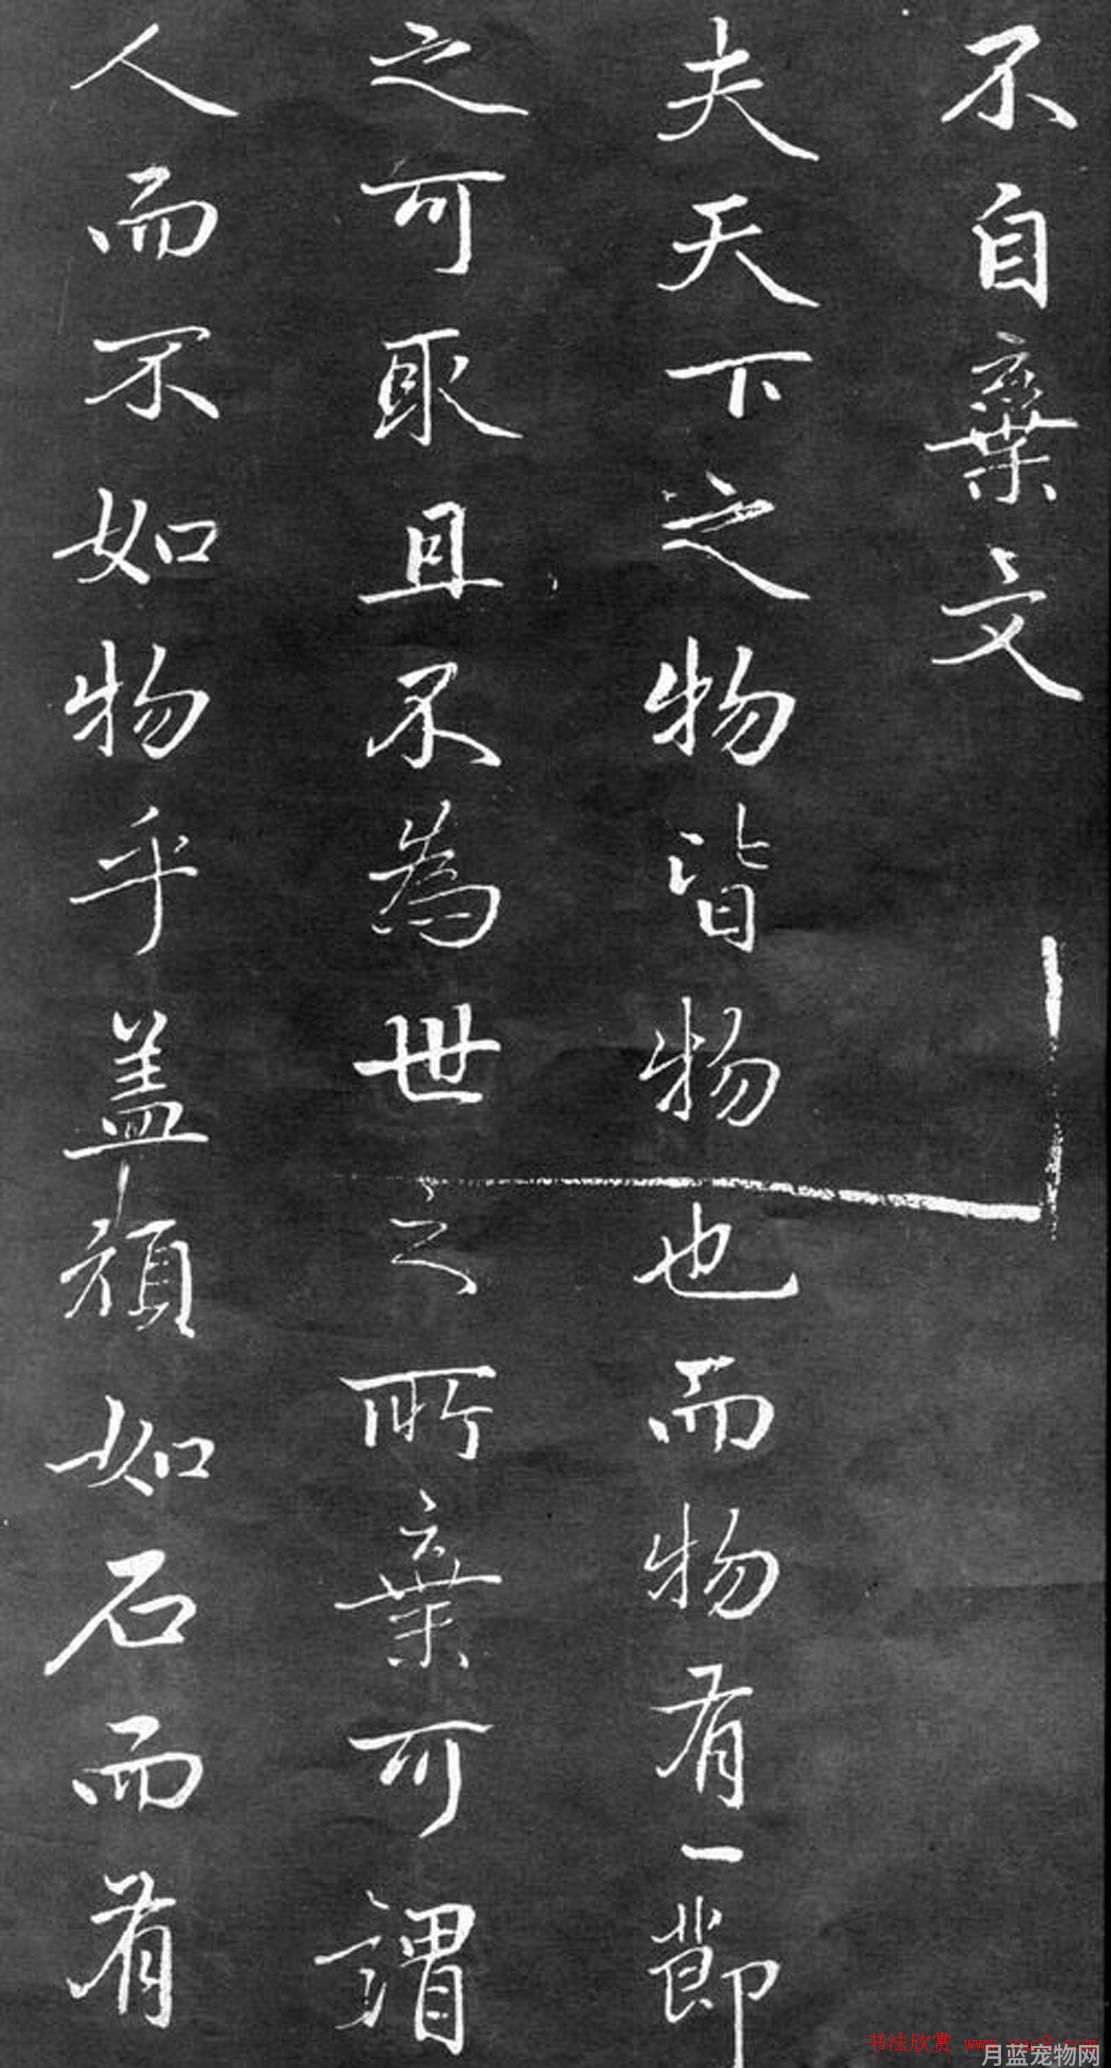 不自棄文
夫天下之物皆物也而物有一節
之可取且不為世之所棄可謂
人而不如物乎盖頑如石而有
书法欣赏
月蓝宠物网